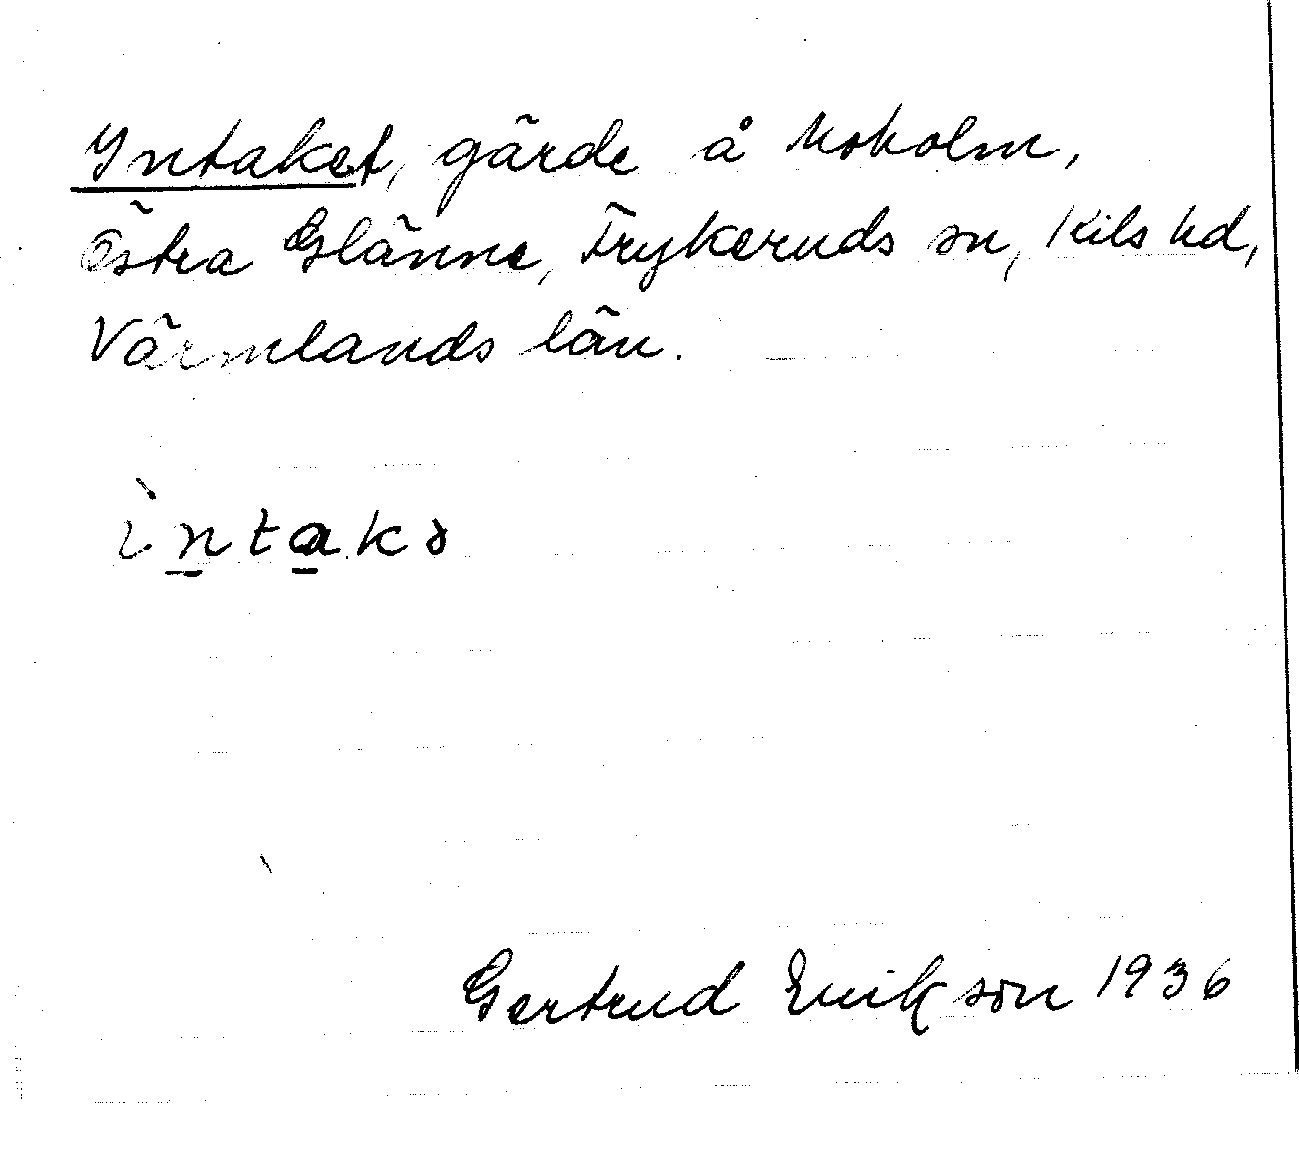 Intaket, gärde å Moholm,
Östra Glänne, Frykeruds sn, Kils hd,
Värmlands län.
ìn̲ta̲kə
Gertrud Erikson 1936